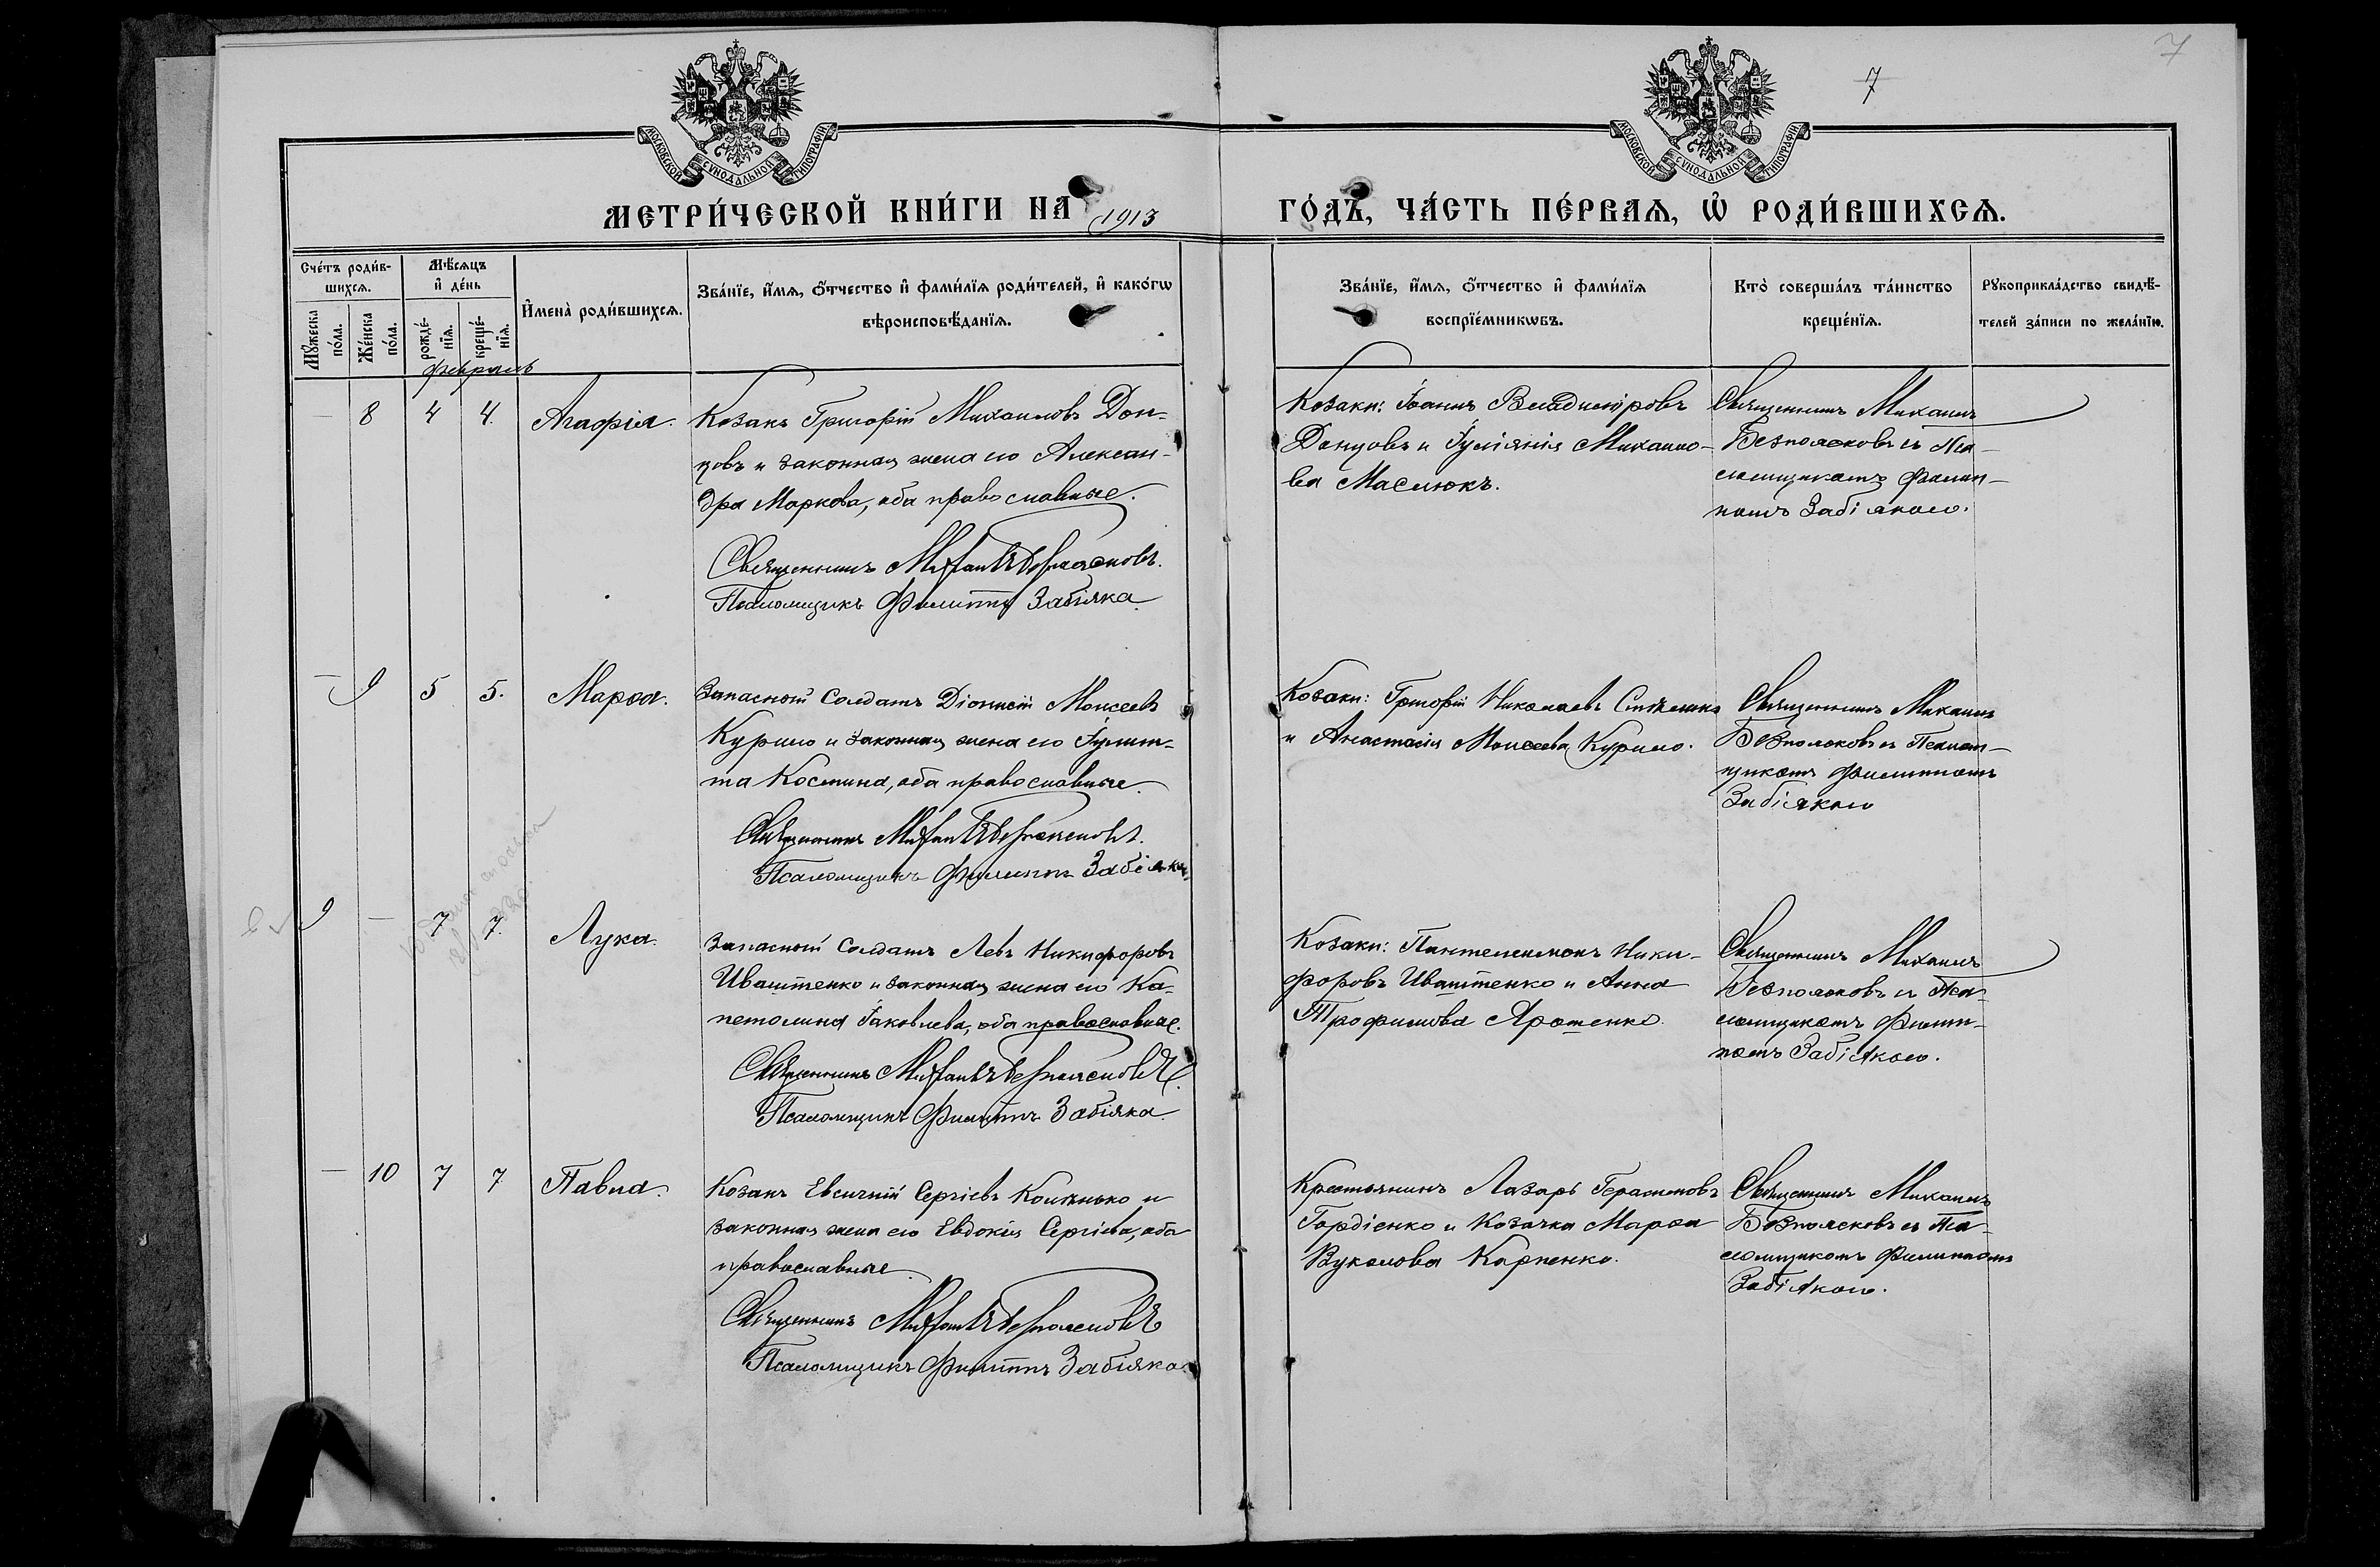 7
7
МОСКОВСКОЙ СУНОДАЛЬНОЙ ТИПОГРАФІИ
МОСКОВСКОЙ СУНОДАЛЬНОЙ ТИПОГРАФІИ
МЕТРИ́ЧЕСКОЙ КНИ́ГИ НА 1913 ГО́ДЪ, ЧА́СТЬ ПЕ́РВАѦ, Ѡ҆ РОДИ́ВШИХСѦ.
Сче́тъ роди́в-
шихсѧ.
Мѣ́сѧцъ
и҆ де́нь
Мꙋ́жеска
по́ла.
Же́нска
по́ла.
рожде́-
нїѧ.
креще́-
нїѧ.
И҆мена̀ роди́вшихсѧ.
Зва́нїе, и҆́мѧ, ѻ҆́тчество и҆ фами́лїѧ роди́телей, и҆ како́гѡ
вѣроисповѣ́данїѧ.
Зва́нїе, и҆́мѧ, ѻ҆́тчество и҆ фами́лїѧ
воспрїе́мникѡвъ.
Кто̀ соверша́лъ та́инство
креще́нїѧ.
Рꙋкоприкла́дство свидѣ́-
телей за́писи по жела́нїю.
февраль
— 8 4 4. Агафія.
Козакъ Григорій Михаиловъ Дон-
цовъ и законная жена его Алексан-
дра Маркова, оба православные.
Священникъ Михаилъ Безпоясковъ.
Псаломщикъ Филиппъ Забіяка.
Козаки: Іоаннъ Владиміровъ
Донцовъ и Іуліанія Михаило-
ва Маслюкъ.
Священникъ Михаилъ
Безпоясковъ съ Пса-
ломщикомъ Филип-
помъ Забіякою.
— 9 5 5. Марѳа.
Запасной Солдатъ Діонисій Моисеевъ
Курило и законная жена его Іулит-
та Космина, оба православные.
Священникъ Михаилъ Безпоясковъ.
Псаломщикъ Филиппъ Забіяка.
Козаки: Григорій Николаевъ
и Анастасія Моисеева Курило.
Священникъ Михаилъ
Безпоясковъ съ Псалом-
щикомъ Филиппомъ
Забіякою
9 — 7 7. Лука.
Запасной Солдатъ Левъ Никифоровъ
Иваштенко и законная жена его Ка-
петолина Іаковлева, оба православные.
Священникъ Михаилъ Безпоясковъ.
Псаломщикъ Филиппъ Забіяка.
Козаки: Пантелеимонъ Ники-
форовъ Иваштенко и Анна
Трофимова Ярошенко.
Священникъ Михаилъ
Безпоясковъ съ Пса-
ломщикомъ Филип-
помъ Забіякою.
— 10 7 7 Павла.
Козакъ Евсигній Сергіевъ и
законная жена его Евдокія Сергіева, оба
православные.
Священникъ Михаилъ Безпоясковъ
Псаломщикъ Филиппъ Забіяка.
Крестьянинъ Лазарь Герасимовъ
Гордіенко и Козачка Марѳа
Вуколова Карпенко.
Священникъ Михаилъ
Безпоясковъ съ Пса-
ломщикомъ Филиппомъ
Забіякою.